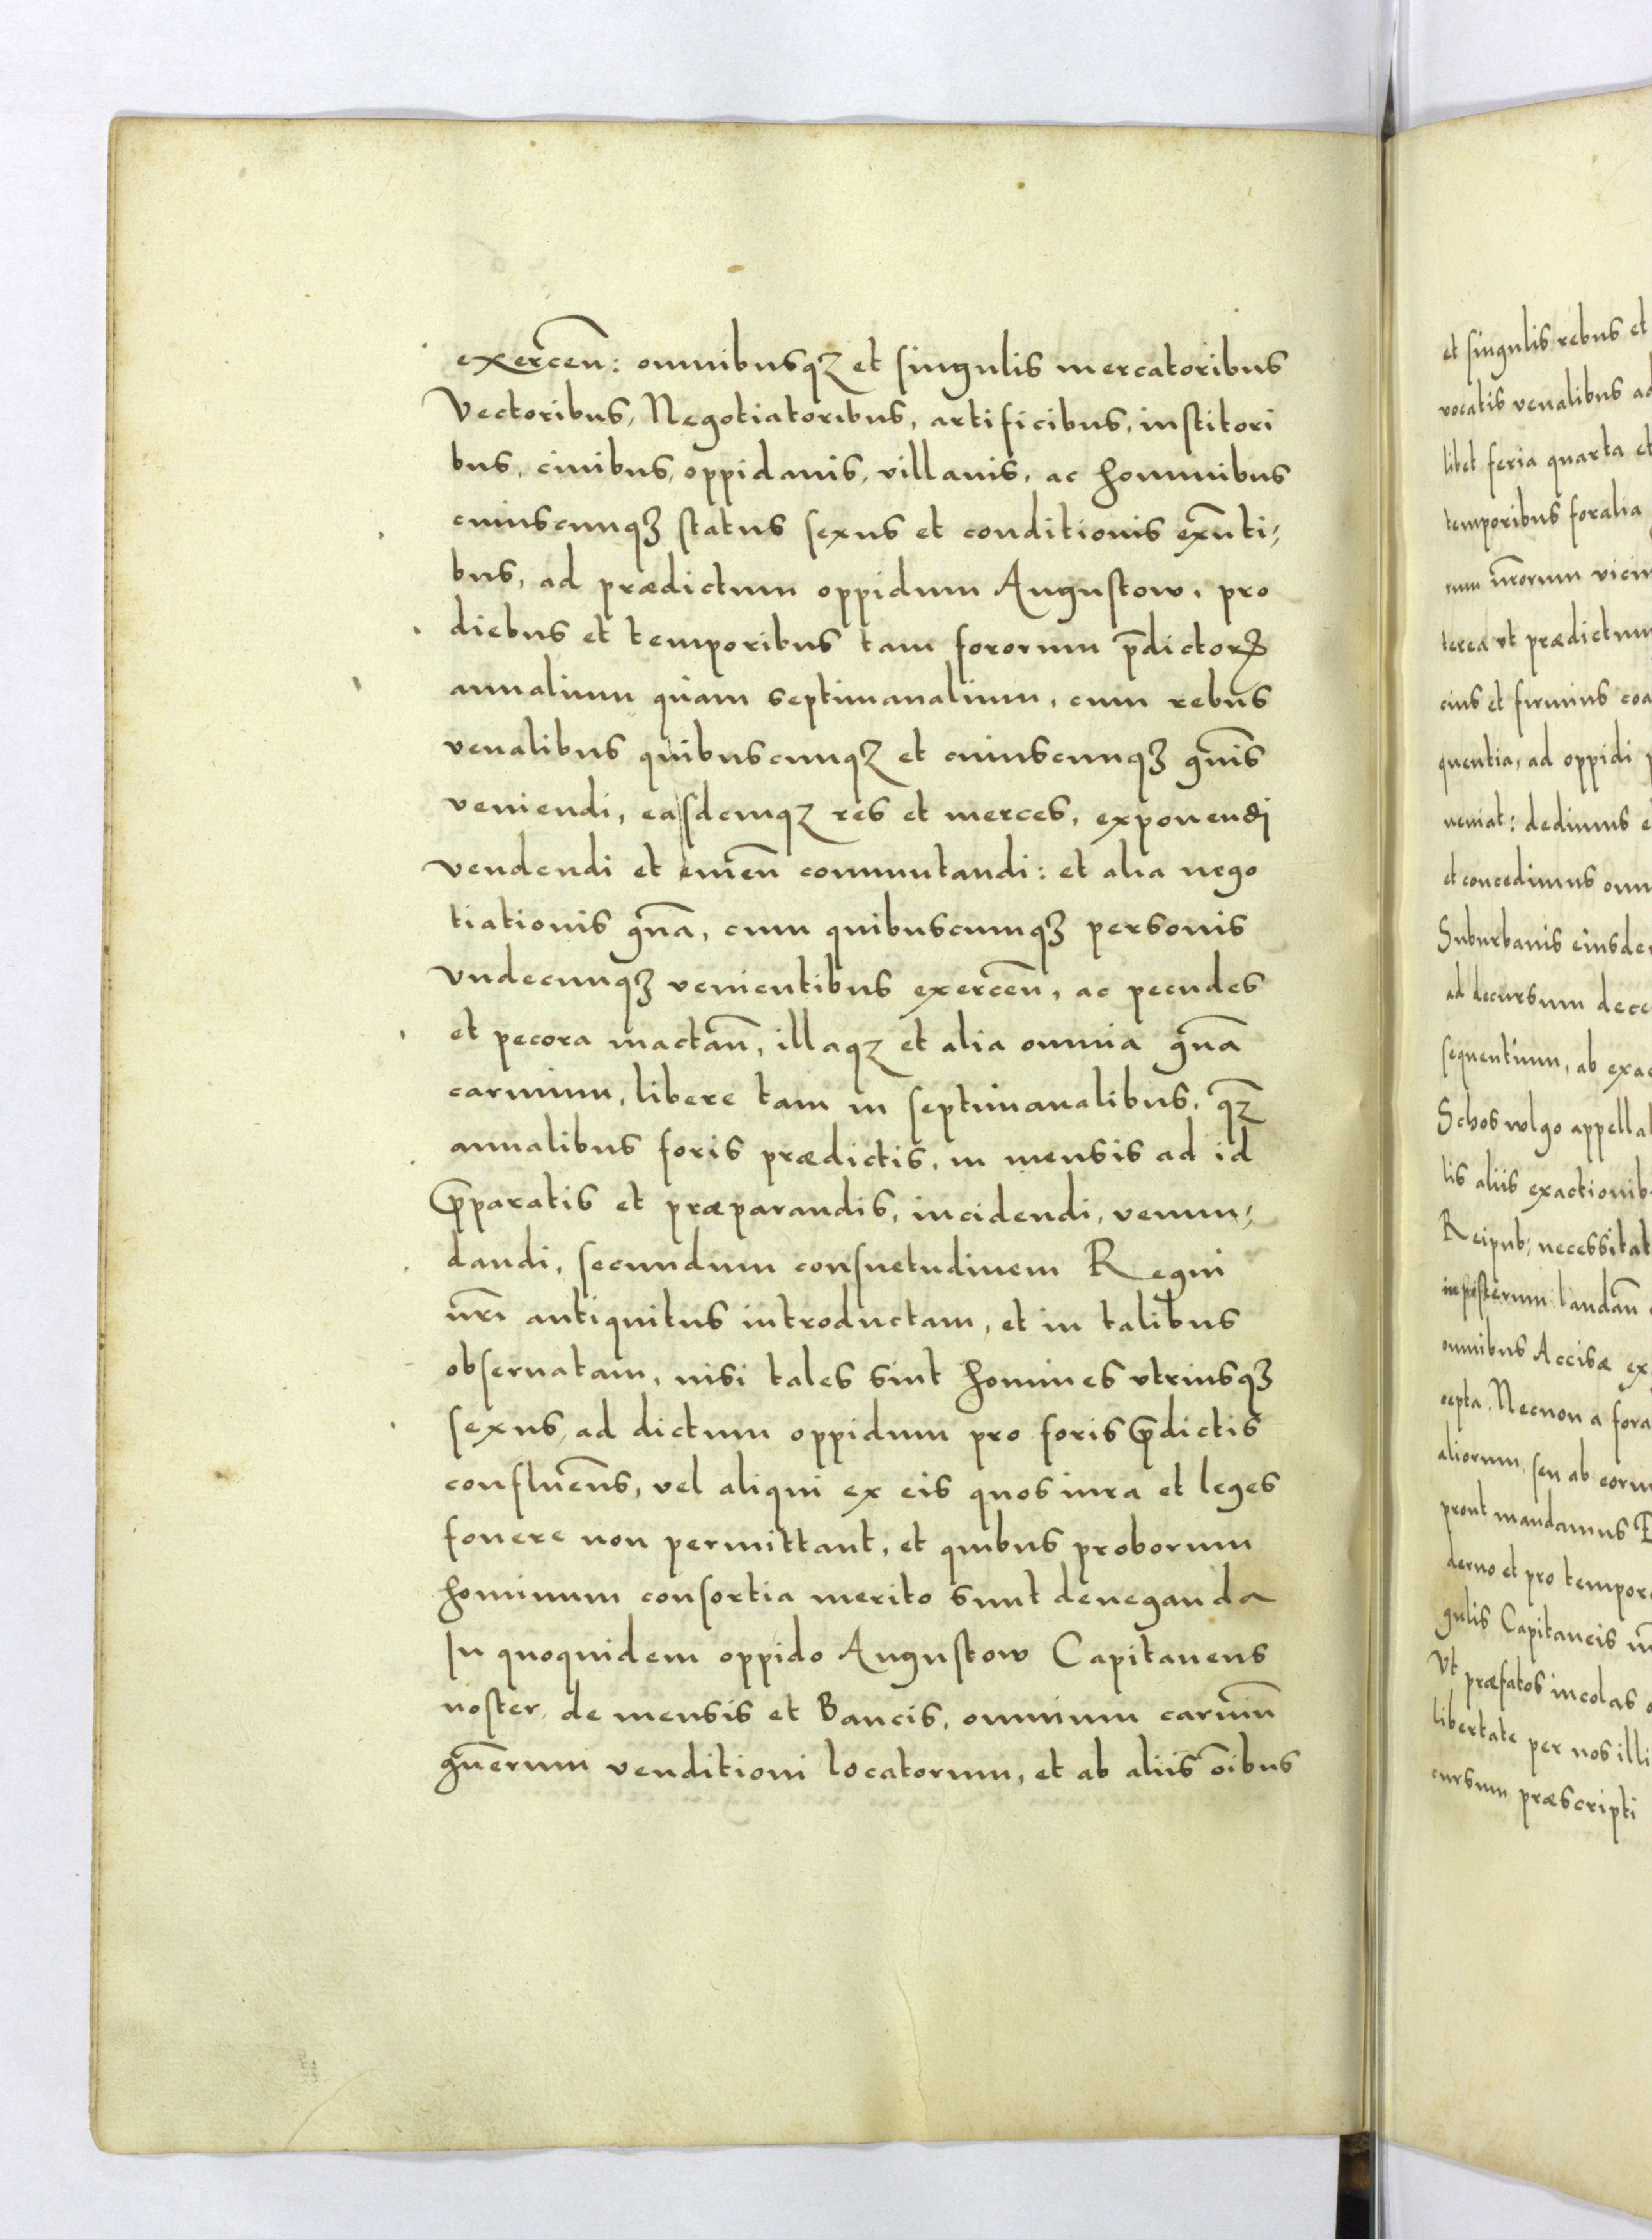 exercen̄: omnibusqꝫ et singulis mercatoribus
Vectoribus, Negotiatoribus, artificibus, institori
bus, ciuibus, oppidanis, villanis, ac hominibus
cuiuscunqꝫ status sexus et conditionis exn̄ti,
bus, ad prædictum oppidum Augustow, pro
diebus et temporibus tam fororum p̄dictorꝝ
annalium quam septimanalium, cum rebus
venalibus quibuscunqꝫ et cuiuscunqꝫ gn̄is
veniendi, easdemqꝫ res et merces, exponendi
vendendi et emen̄ commutandi: et alia nego
tiationis gn̄a, cum quibuscumqꝫ personis
vndecunqꝫ venientibus exercen̄, ac pecudes
et pecora mactan̄, illaqꝫ et alia omnia gn̄a
carnium, libere tam in septimanalibus, qꝫ̄
annalibus foris prædictis, in mensis ad id
p̄paratis et præparandis, incidendi, venun,
dandi, secundum consuetudinem Regni
nr̄i antiquitus introductam, et in talibus
obseruatam, nisi tales sint homines vtriusqꝫ
sexus, ad dictum oppidum pro foris p̄dictis
confluen̄s, vel aliqui ex eis quos iura et leges
fouere non permittant, et quibus proborum
hominum consortia merito sunt deneganda
In quoquidem oppido Augustow Capitaneus
noster, de mensis et Bancis, omnium carniū
gn̄erum venditioni locatorum, et ab aliis oībus
et singulis rebus et
vocatis venalibus ad
libet feria quarta et
temporibus foralia
rum nr̄orum vicin
terea vt prædictum
cius et firmius coa
quentia, ad oppidi
veniat: dedimus e
et concedimus omn
Suburbanis eiusde
ad decursum dece
sequentium, ab exac
Schos vulgo appella
lis aliis exactionib
Reipub: necessitat
inposterum laudan̄
omnibus Accisæ ex
cepta. Necnon a fora
aliorum, seu ab eorum
prout mandamus
derno et pro tempore
gulis Capitaneis
Vt præfatos incolas
libertate per nos illi
cursum præscripti